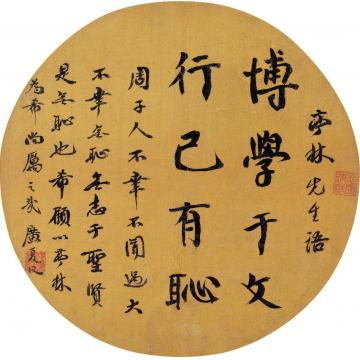 亭林先生語
博學于文
行己有恥
周子人不幸不聞過大
不幸無恥無志于聖賢
是無恥也希顧以亭林
為希尚厲之哉